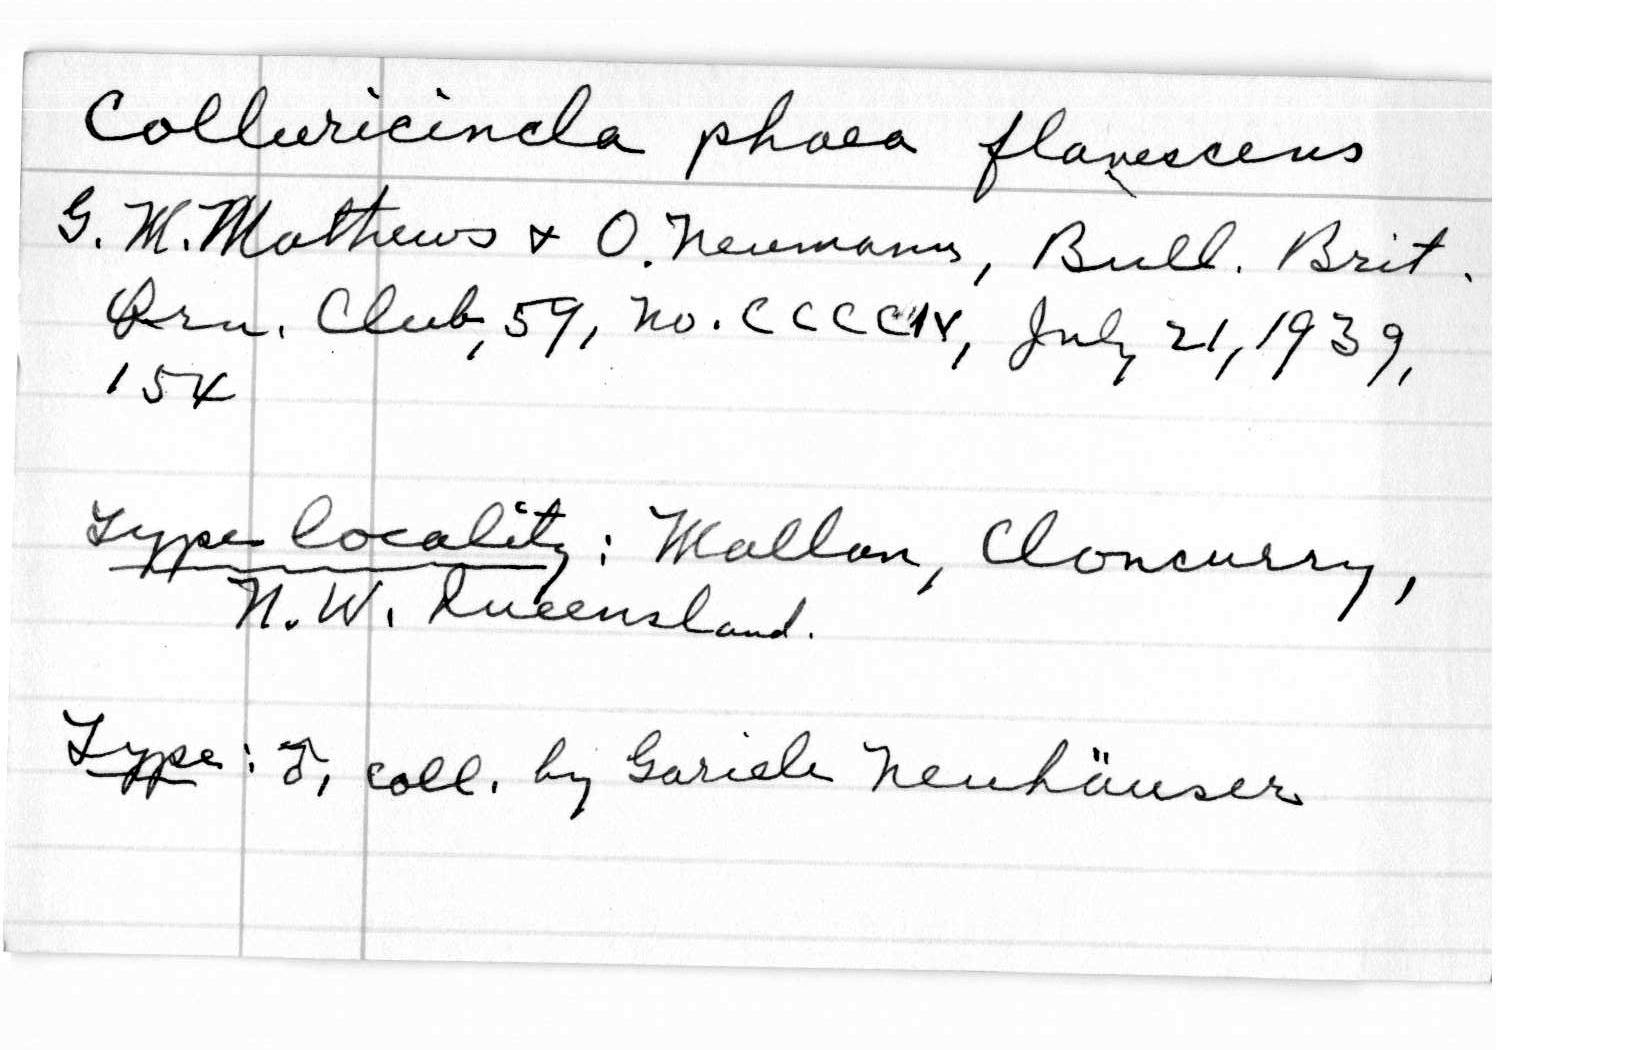 Colluricincla phaea flavescens
G. M. Mathews & O. Neumann, Bull. Brit.
Orn. Club, 59, no. CCCCIV, July 21, 1939,
154
Type locality: Mallon, Cloncurry,
N. W. Queensland.
Type: ♂, coll. by Gariele Neuhäuser